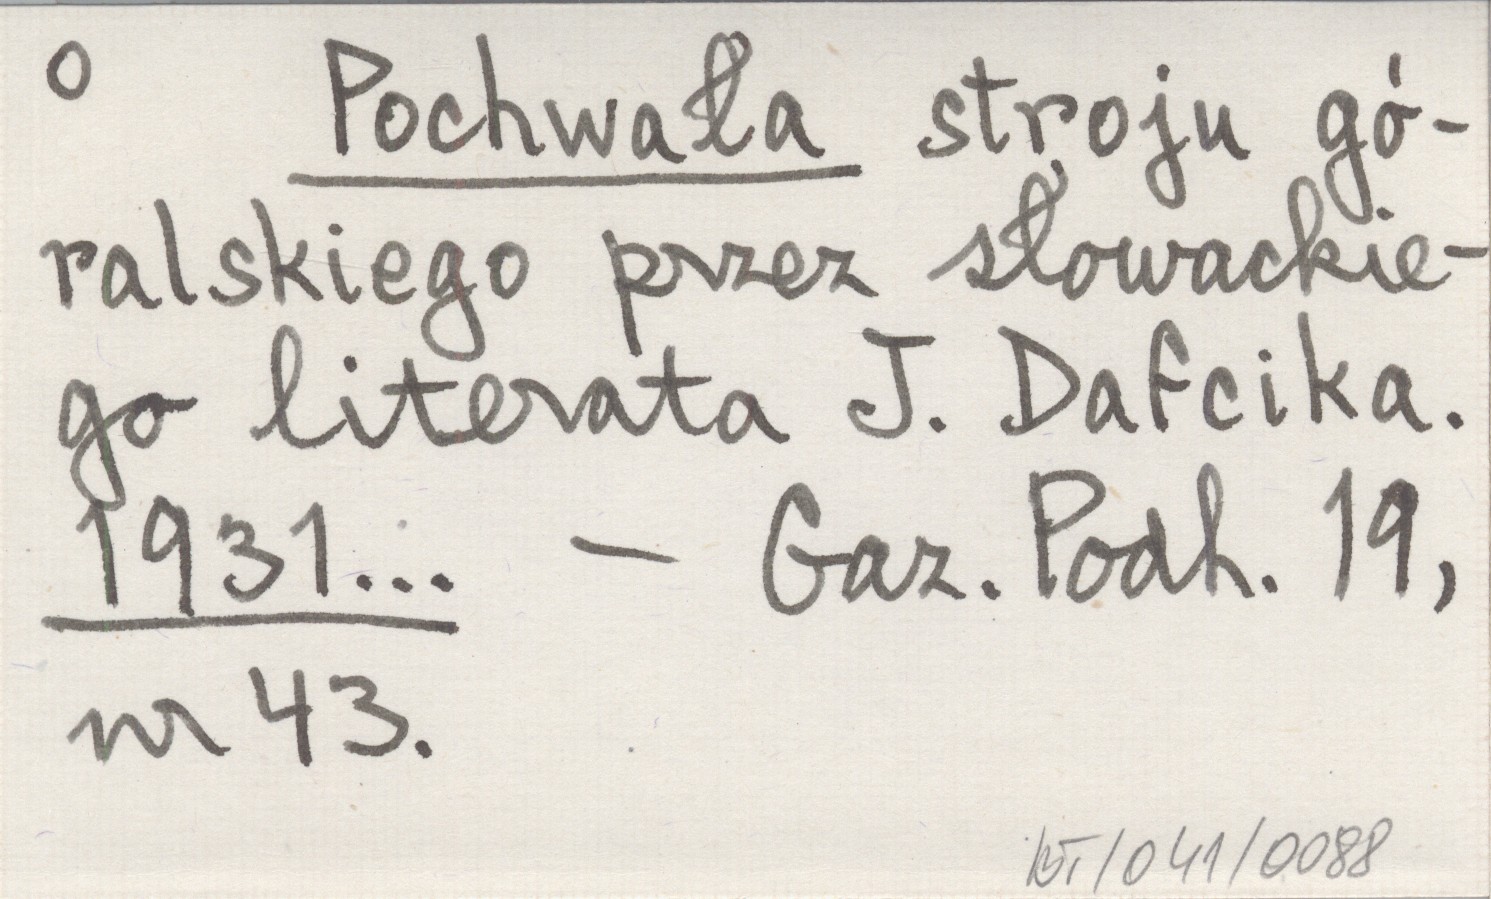 o Pochwała stroju gó-
ralskiego przez słowackie-
go literata J. Dafcika.
1931... – Gaz. Podh. 19,
nr 43.
BT/041/0088